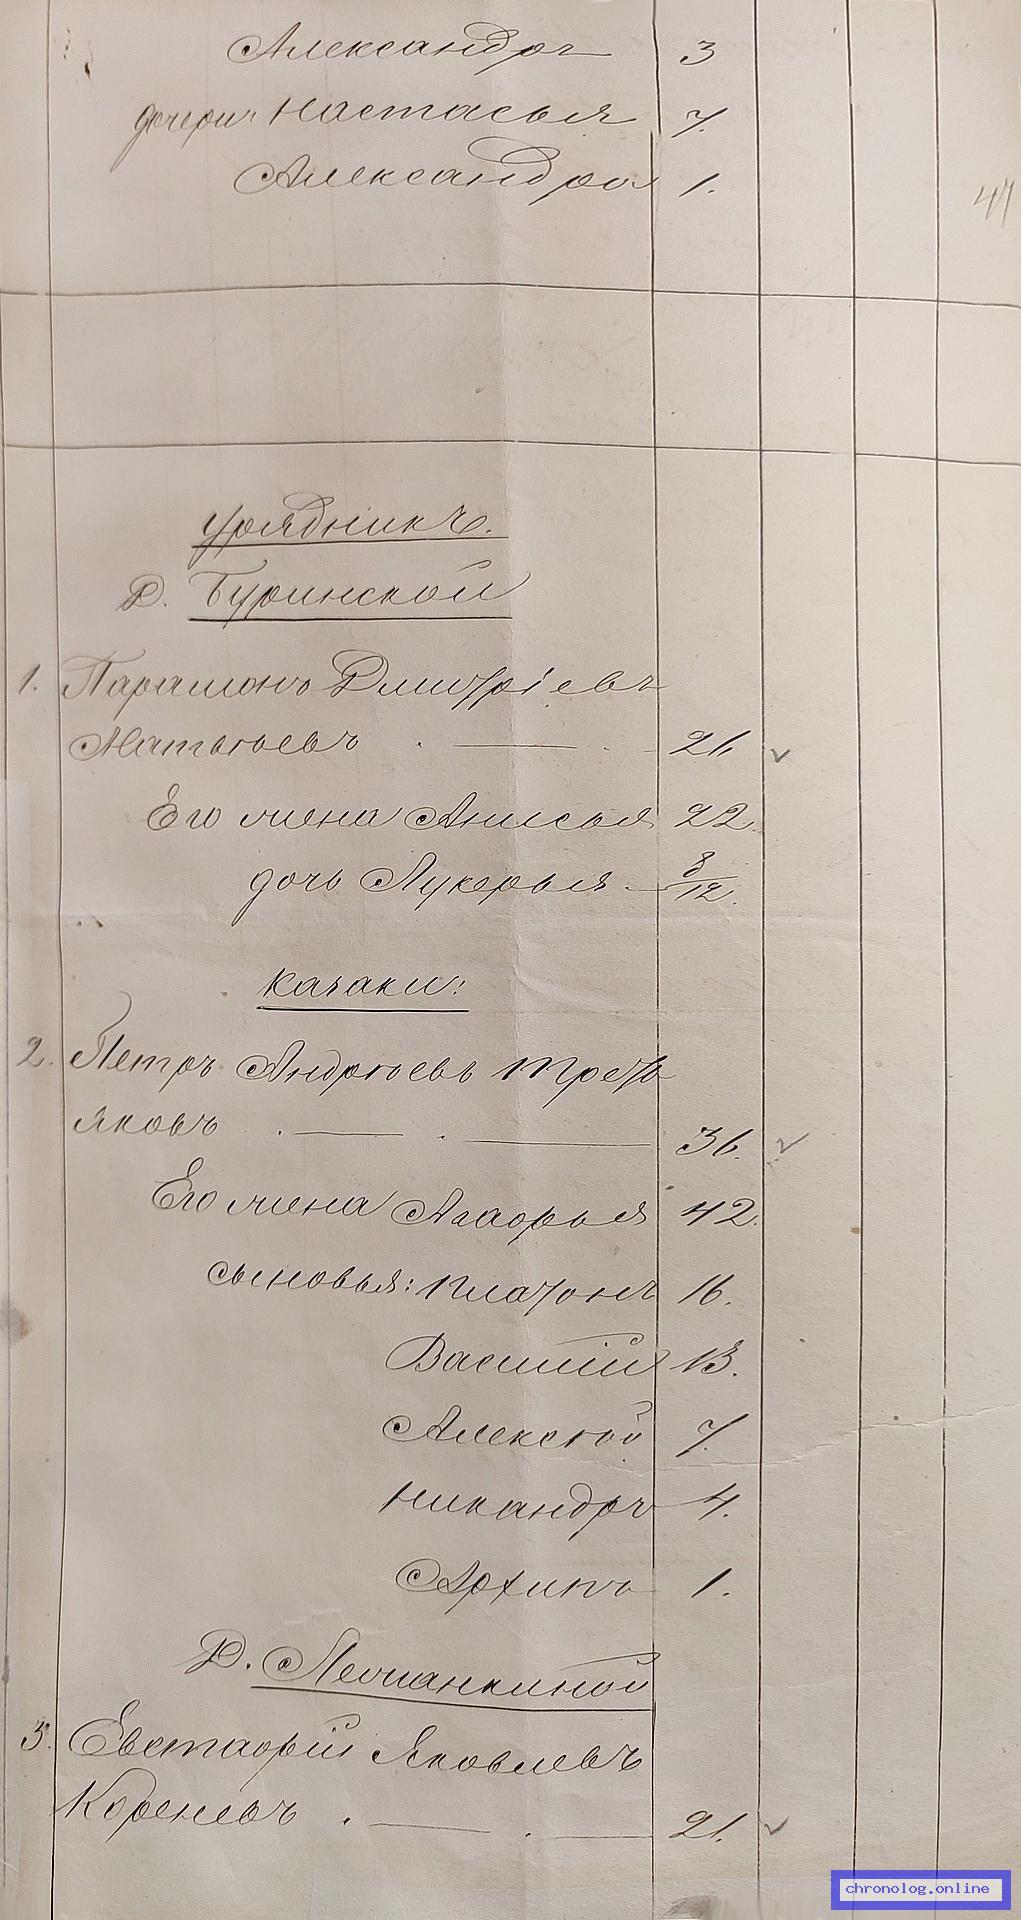 Александръ 3
дочери: Настасья 7.
Александра 1.
47
Урядникъ.
Д. Буринской
1. Парамонъ Дмитріевъ
Матвѣевъ 21.
Его жена Анисья 22.
дочь Лукерья 8/12.
Казаки:
2. Петръ Андрѣевъ Треть
яковъ 36.
Его жена Агафья 42.
сыновья: Платонъ 16.
Василій 13.
Алексѣй 7.
Никандръ 4.
Архипъ 1.
Д.
3. Евстафій Яковлевъ
Кореневъ 21.
chronolog.online